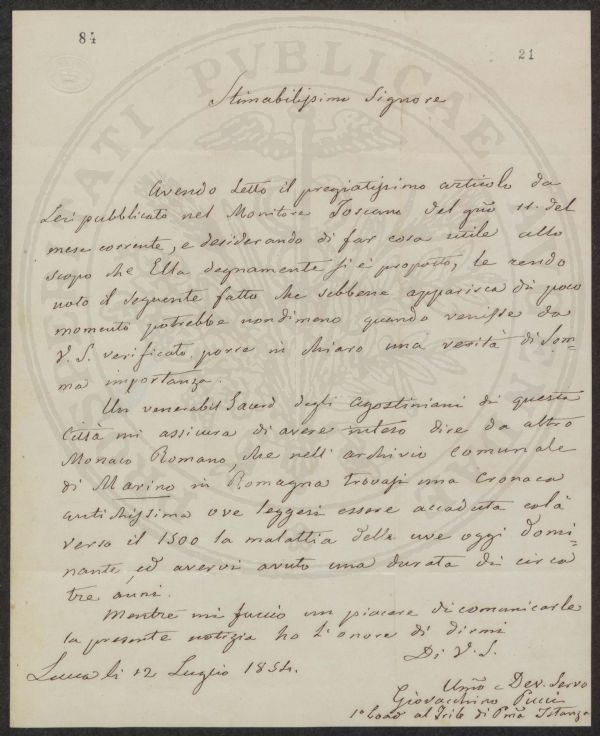 84
21
Stimabilissimo Signore
Avendo letto il pregiatissimo articolo da
Lei pubblicato nel Monitore Toscano del gno 11. del
mese corrente, e desiderando di far cosa utile allo
scopo che Ella degnamente si è proposto, le rendo
noto il seguente fatto che sebbene apparisca di poco
momento potrebbe nondimeno quando venisse da
V. S. verificato, porre in chiaro una verità di som-
ma importanza.
Un venerabil Sacerd degli Agostiniani di questa
Città mi assicura di avere inteso dire da altro
Monaco Romano, che nell'archivio comunale
di Marino in Romagna trovasi una Cronaca
antichissima ove leggesi essere accaduta colà
verso il 1500 la malattia delle uve oggi domi-
nante, ed avervi avuto una durata di circa
tre anni.
Mentre mi faccio un piacere di comunicarle
la presente notizia ho l'onore di dirmi
Di V. S.
Lucca li 12 Luglio 1854.
Umo Dev. Servo
Giovacchino Pucci
1º Coad al Trib di Pma Istanza